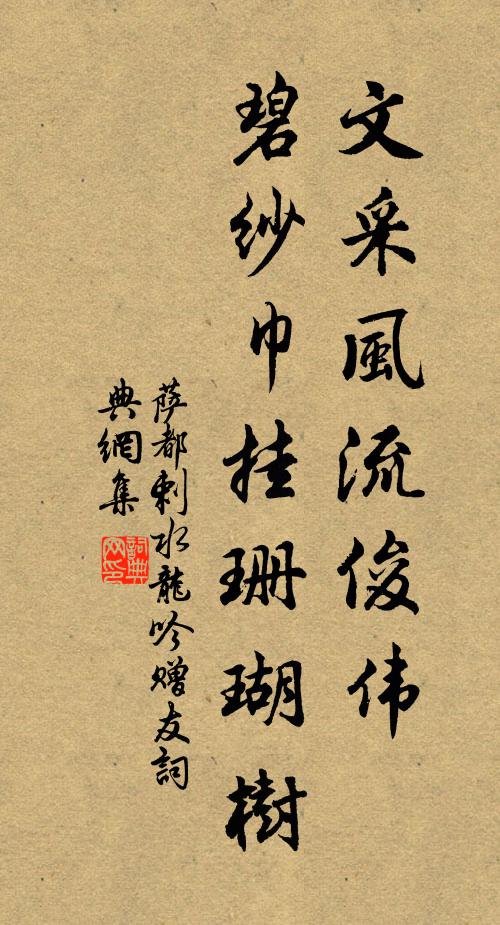 文采風流俊伟
碧纱巾挂珊瑚樹
萨都剌水龍吟赠友詞
典網集
詞典网印